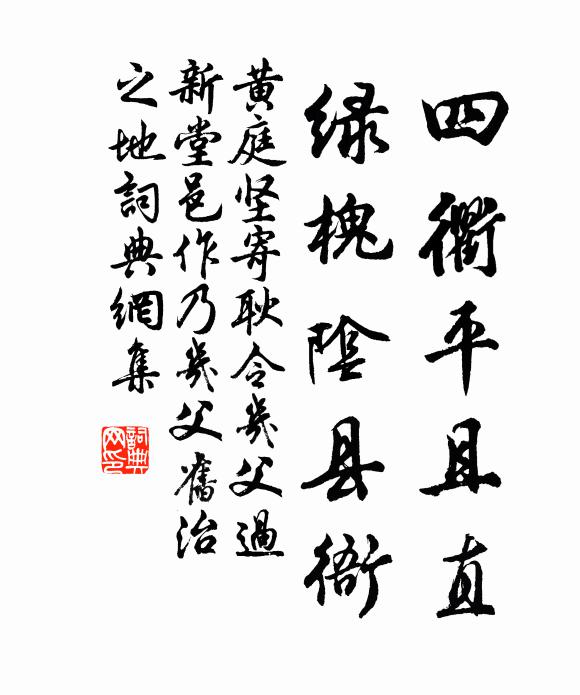 四衢平且直
绿槐阴县衙
黄庭坚寄耿令几父過
新堂邑作乃几父舊治
之地詞典網集
詞典网印